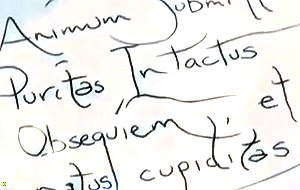 Animum Submi
Puritas Intactus
Obsequiem et
cupiditas